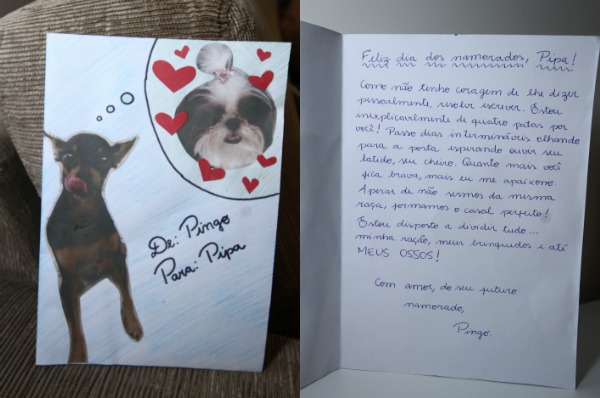 De: Pingo
Para: Pipa
Feliz dia dos namorados, Pipa!
Como não tinha coragem de lhe dizer
pessoalmente, resolvi escrever. Estou
inexplicavelmente de quatro patas por
você! Passo dias intermináveis olhando
para a porta esperando ouvir seu
latido, seu cheiro. Quanto mais você
fica brava, mais eu me apaixono.
Apesar de não sermos da mesma
raça, formamos o casal perfeito!
Estou disposto a dividir tudo...
minha ração, meus brinquedos e até
MEUS OSSOS!
Com amor, do seu futuro
namorado,
Pingo.